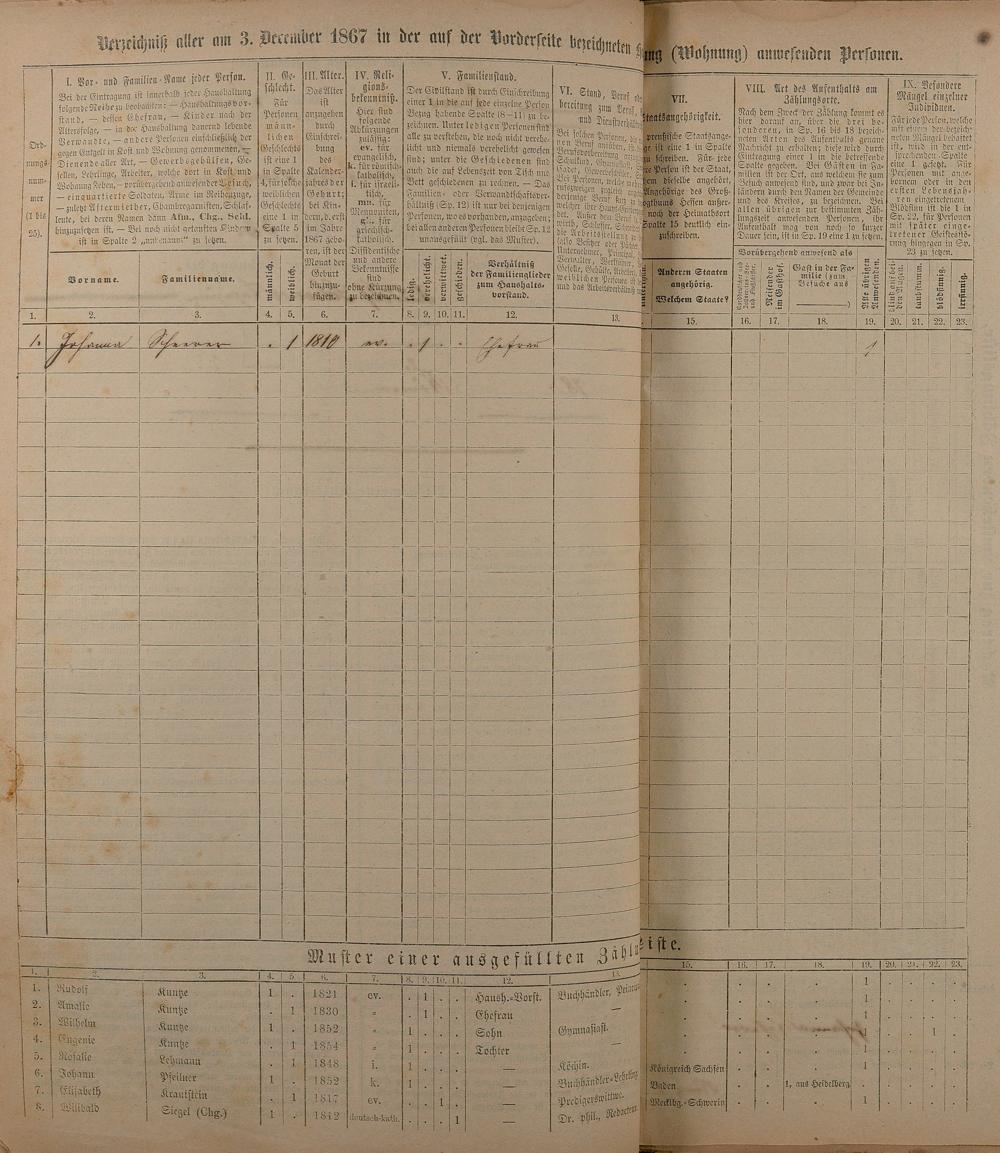 Verzeichniß aller am 3. December 1867 in der auf der Vorderseite bezeichneten
ung (Wohnung) anwesenden Personen.
Ord-
nungs-
num-
mer
(1 bis
25).
I. Vor- und Familien-Name jeder Person.
Bei der Eintragung ist innerhalb jeder Haushaltung
folgende Reihe zu beobachten: — Haushaltungsvor-
stand, — dessen Ehefrau, — Kinder nach der
Altersfolge, — in der Haushaltung dauernd lebende
Verwandte, — andere Personen einschließlich der
gegen Entgelt in Kost und Wohnung genommenen, —
Dienende aller Art, — Gewerbsgehülfen, Ge-
sellen, Lehrlinge, Arbeiter, welche dort in Kost und
Wohnung stehen, — vorübergehend anwesender Besuch,
— einquartierte Soldaten, Arme im Reihezuge,
— zuletzt Aftermiether, Chambregarnisten, Schlaf-
leute, bei deren Namen dann Afm., Chg., Schl.
hinzuzusetzen ist. — Bei noch nicht getauften Kindern
ist in Spalte 2 „unbenannt" zu setzen.
Vorname.
Familienname.
II. Ge-
schlecht.
Für
Personen
männ-
lichen
Geschlechts
ist eine 1
in Spalte
4, für solche
weiblichen
Geschlechts
eine 1 in
Spalte 5
zu setzen.
männlich.
weiblich.
III. Alter.
Das Alter
ist
anzugeben
durch
Einschrei-
bung
des
Kalender-
jahres der
Geburt;
bei Kin-
dern, d. erst
im Jahre
1867 gebo-
ren, ist der
Monat der
Geburt
hinzuzu-
fügen.
IV. Reli-
gions-
bekenntniß.
Hier sind
folgende
Abkürzungen
zulässig:
ev. für
evangelisch,
k. für römisch-
katholisch,
i. für israeli-
tisch,
mn. für
Mennoniten,
g. für
griechisch-
katholisch.
Dissidentische
und andere
Bekenntnisse
sind
ohne Kürzung
zu bezeichnen.
V. Familienstand.
Der Civilstand ist durch Einschreibung
einer 1 in die auf jede einzelne Person
Bezug habende Spalte (8—11) zu be-
zeichnen. Unter ledigen Personen sind
alle zu verstehen, die noch nicht vereh-
licht und niemals verehelicht gewesen
sind; unter die Geschiedenen sind
auch die auf Lebenszeit von Tisch und
Bett geschiedenen zu rechnen. — Das
Familien- oder Verwandtschaftsver-
hältniß (Sp. 12) ist nur bei denjenigen
Personen, wo es vorhanden, anzugeben;
bei allen anderen Personen bleibt Sp. 12
unausgefüllt (vgl. das Muster).
ledig.
verehelicht.
verwittwet.
geschieden.
Verhältniß
der Familienglieder
zum Haushalts-
vorstand.
VI. Stand, Beruf
VII.
Staatsangehörigkeit.
Anderen Staaten
angehörig.
Welchem Staate?
VIII. Art des Aufenthalts am
Zählungsorte.
Nach dem Zweck der Zählung kommt es
hier darauf an, über die drei be-
sonderen, in Sp. 16 bis 18 bezeich-
neten Arten des Aufenthalts genaue
Nachricht zu erhalten; diese wird durch
Eintragung einer 1 in die betreffende
Spalte gegeben. Bei Gästen in Fa-
milien ist der Ort, aus welchem sie zum
Besuch anwesend sind, und zwar bei In-
ländern durch den Namen der Gemeinde
und des Kreises, zu bezeichnen. Bei
allen übrigen zur bestimmten Zäh-
lungszeit anwesenden Personen, ihr
Aufenthalt mag von noch so kurzer
Dauer sein, ist in Sp. 19 eine 1 zu setzen.
Vorübergehend anwesend als
Reisender
im Gasthof.
Gast in der Fa-
milie (zum
Besuche aus
)
Alle übrigen
Anwesenden.
IX. Besondere
Mängel einzelner
Individuen.
Für jede Person, welche
mit einem der bezeich-
neten Mängel behaftet
ist, wird in der ent-
sprechenden Spalte
eine 1 gesetzt. Für
Personen mit ange-
bornem oder in den
ersten Lebensjah-
ren eingetretenem
Blödsinn ist die 1 in
Sp. 22, für Personen
mit später einge-
tretener Geistesstö-
rung hingegen in Sp.
23 zu setzen.
taubstumm.
blödsinnig.
irrsinnig.
1. 2. 3. 4. 5. 6. 7. 8. 9. 10. 11. 12. 13. 15. 16. 17. 18. 19. 20. 21. 22. 23.
1. Johanna Scheerer . 1 1810 ev. . 1 . . Ehefrau 1
Muster einer ausgefüllten Zähl
iste.
1. 2. 3. 4. 5. 6. 7. 8. 9. 10. 11. 12. 13. 15. 16. 17. 18. 19. 20. 21. 22. 23.
1. Rudolf Kuntze 1 . 1821 ev. . 1 . . Haush.-Vorst. Buchhändler, . . . . 1 . . . .
2. Amalie Kuntze . 1 1830 „ . 1 . . Ehefrau — . . . . 1 . . . .
3. Wilhelm Kuntze 1 . 1852 „ 1 . . . Sohn Gymnasiast. . . . . 1 . . . .
4. Eugenie Kuntze . 1 1854 „ 1 . . . Tochter — . . . . 1 . . . .
5. Rosalie Lehmann . 1 1848 i. 1 . . . — Köchin. Königreich Sachsen . . . 1 . . . .
6. Johann Pfeilner 1 . 1852 k. 1 . . . — Buchhändler-Lehrling Baden . . 1, aus Heidelberg . . . . .
7. Elisabeth Krautstein . 1 1817 ev. . . 1 . — Predigerswittwe. Mecklbg.-Schwerin . . . 1 . . . .
8. Wilibald Siegel (Chg.) 1 . 1812 deutsch-kath. . . . 1 — Dr. phil., Redacteur